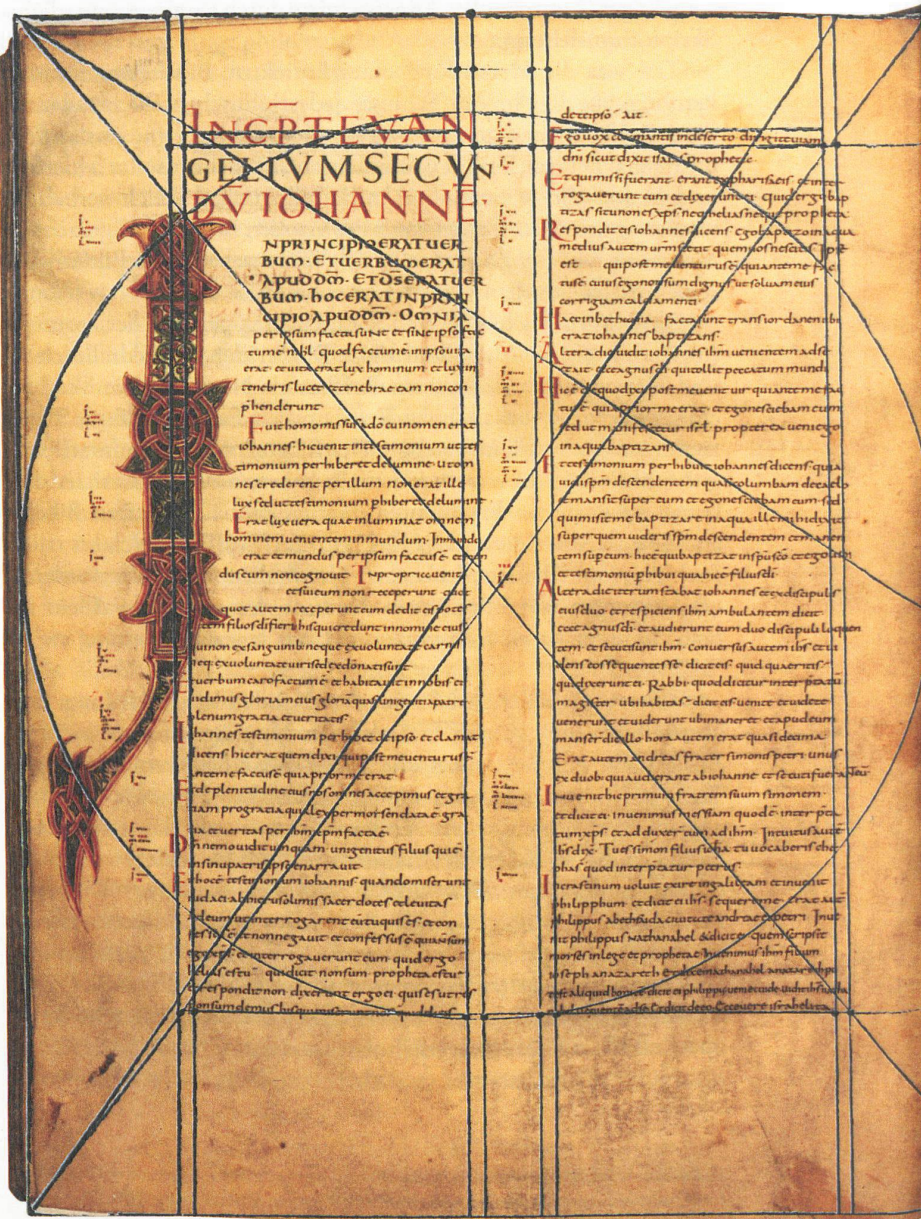 INCP̄T EVAN
GELIVM SECVN
DV̄ IOHANNĒ
NPRINCIPIOERATUER
BUM· ETUERBUMERAT
APUDDM̄· ETDS̄ERATUER
BUM· hOCERATINPRIN
CIPIOAPUDDM̄· OMNIA
per ipsum facta sunt et sine ipso fac
tum ē nihil quod factum ē inipso uita
erat et uita erat lux hominum et lux in
tenebris lucet et tenebrae eam non con
p̄henderunt
Fuit homo missus a dō cui nomen erat
iohannes hic uenit in testimonium ut tes
timonium perhiberet de lumine ut om
nes crederent per illum non erat ille
lux sed ut testimonium p̄hiberet de lumine
Erat lux uera quae inluminat omnem
hominem uenientem in mundum· In mundo
erat et mundus per ipsum factus ē et
dus eum non cognouit In propria uenit
et sui eum non receperunt quot
quot autem receperunt eum dedit eis potes
filios dī fieri his qui credunt in nomine eius
qui non ex sanguinib· neque ex uoluntate carnis
neq· ex uoluntate uiri sed ex dō nati sunt
Et uerbum caro factum ē et habitauit in nobis et
uidimus gloriam eius gloriā quasi unigeniti a patre
plenum gratia et ueritatis
Iohannes testimonium perhibet de ipso et clamat
dicens hic erat quem dixi qui post me uenturus ē
ante me factus ē quia prior me erat
Et de plenitudine eius nos omnes accepimus et gra
tiam pro gratia quia lex per morsen data ē gra
tia et ueritas per ihm xpm facta ē
Dm̄ nemo uidit umquam· unigenitus filius qui ē
in sinu patris ipse enarrauit
Et hoc ē testimonium iohannis quando miserunt
iudaei ab hierusolimis sacerdotes et leuitas
ad eum ut interrogarent eū tu quis es· et con
fessus ē et non negauit et confessus ē quia n̄ sum
ego xps· et interrogauerunt eum quid ergo
helias es tu· et dicit non sum· propheta es tu
et respondit non dixerunt ergo ei quis es ut res
ponsum demus his qui
de te ipso· Ait
Ego uox clamantis in deserto dirigite uiam
dn̄i sicut dixit isaias propheta·
Et qui missi fuerant· erant ex pharisaeis et inter
rogauerunt eum et dixerunt ei· Quid ergo bap
tizas si tu non es xps neq· helias neq· propheta·
Respondit eis iohannes dicens ego baptizo in aqua
medius autem urm̄ stetit quem uos nescitis Ipse
est qui post me uenturus ē· qui ante me fac
tus ē· cuius ego non sum dignus ut soluam eius
corrigiam calciamenti·
Haec in bethania facta sunt trans iordanen ubi
erat iohannes baptizans·
Altera die uidit iohannes ihm uenientem ad se
et ait· ecce agnus dī qui tollit peccatum mundi
Hic ē de quo dixi post me uenit uir qui ante me fac
tus ē· quia prior me erat· et ego nesciebam eum
sed ut manifestetur isrl propterea ueni ego
in aqua baptizans·
Et testimonium perhibuit iohannes dicens· quia
uidi spm descendentem quasi columbam de caelo
et mansit super eum et ego nesciebam eum· sed
qui misit me baptizare in aqua ille mihi dixit
super quem uideris spm descendentem et manen
tem sup eum· hic ē qui baptizat in spū scō et ego uidi
et testimoniū p̄hibui quia hic ē filius dī·
Altera die iterum stabat iohannes et ex discipulis
eius duo· et respiciens ihm ambulantem dicit
ecce agnus dī· et audierunt eum duo discipuli loquen
tem· et secuti sunt ihm· conuersus autem ihs et ui
dens eos sequentes se· dicit eis· quid quaeritis·
qui dixerunt ei· Rabbi· quod dicitur inter p̄tatu
magister· ubi habitas· dicit eis uenite et uidete
uenerunt et uiderunt ubi maneret et apud eum
manser̄ die illo· hora autem erat quasi decima·
Erat autem andreas frater simonis petri unus
ex duob· qui audierant ab iohanne et secuti fuerant eū
Inuenit hic primum fratrem suum simonem·
et dicit ei· inuenimus messiam quod ē· inter p̄ta
tum xps· et adduxer̄ eum ad ihm· Intuitus autē
ihs dix̄· Tu es simon filius iona tu uocaberis ce
phas· quod interp̄tatur petrus·
In crastinum uoluit exire in galileam et inuenit
philipphum· et dicit ei ihs· sequere me· erat aut̄
philippus a bethsaida ciuitate andreae et petri· Inue
nit philippus Nathanahel & dicit ei· quem scripsit
morses in lege et prophetae inuenimus ihm filium
ioseph a nazareth et dicit ei nathanahel· a nazareth po
test aliquid boni ē· dicit ei philippus ueni et uide